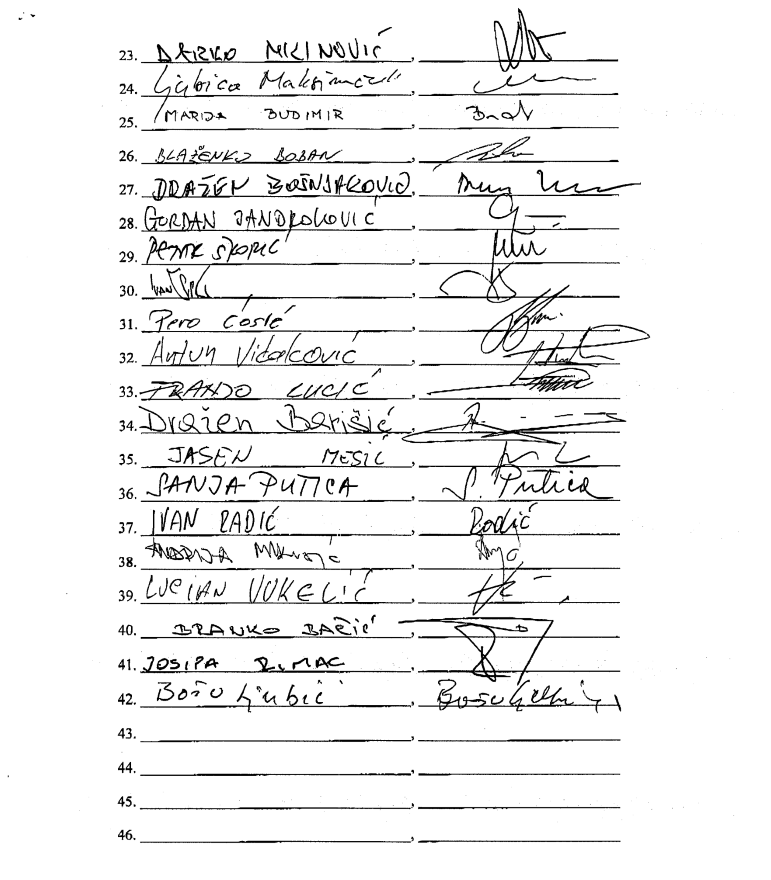 23. DARKO MILINOVIĆ,
24. Ljubica Maksimčuk,
25. MARIJA BUDIMIR,
26. BLAŽENKO BOBAN,
27. DRAŽEN BOŠNJAKOVIĆ,
28. GORDAN JANDROKOVIĆ,
29. PETAR ŠKORIĆ,
30. IVAN,
31. Pero Ćosić,
32. Antun Vidaković,
33. FRANJO LUCIĆ,
34. Dražen Barišić,
35. JASEN MESIĆ,
36. SANJA PUTICA, S. Putica
37. IVAN RADIĆ, Radić
38. ANDRIJA,
39. LUCIAN VUKELIĆ,
40. BRANKO BAČIĆ,
41. JOSIPA RIMAC,
42. Božo Ljubić, Božo Ljubić
43. ,
44. ,
45. ,
46. ,